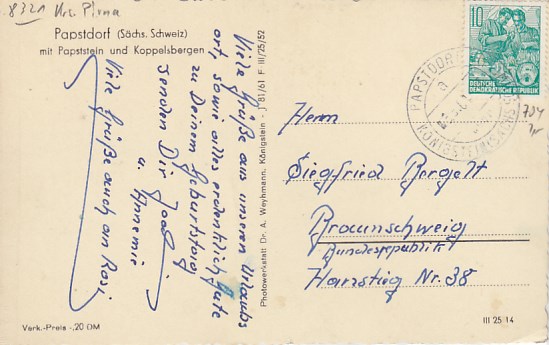 8321 Krs. Pirna
Papstdorf (Sächs. Schweiz)
mit Papststein und Koppelsbergen
Viele Grüße aus unseren Urlaubs
ort, sowie alles erdenklich Gute
zu Deinem Geburtstag
senden Dir Joachi
u. Annemie
Viele Grüße auch an Rosi
Verk.-Preis -,20 DM
Photowerkstatt Dr. A. Weyhmann, Königstein - J 81/61 F III/25/52
10
DEUTSCHE
DEMOKRATISCHE REPUBLIK
PAPSTDORF
KÖNIGSTEIN (SÄCHS
704
Herrn
Siegfried Bergelt
Braunschweig
Bundesrepublik
Hanstieg Nr. 38
III 25 14